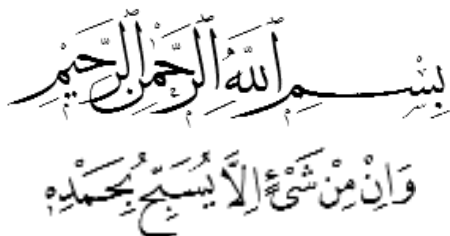 بِسْمِ اللّٰهِ الرَّحْمٰنِ الرَّحِيمِ
وَاِنْ مِنْ شَيْءٍ اِلَّا يُسَبِّحُ بِحَمْدِهٖ